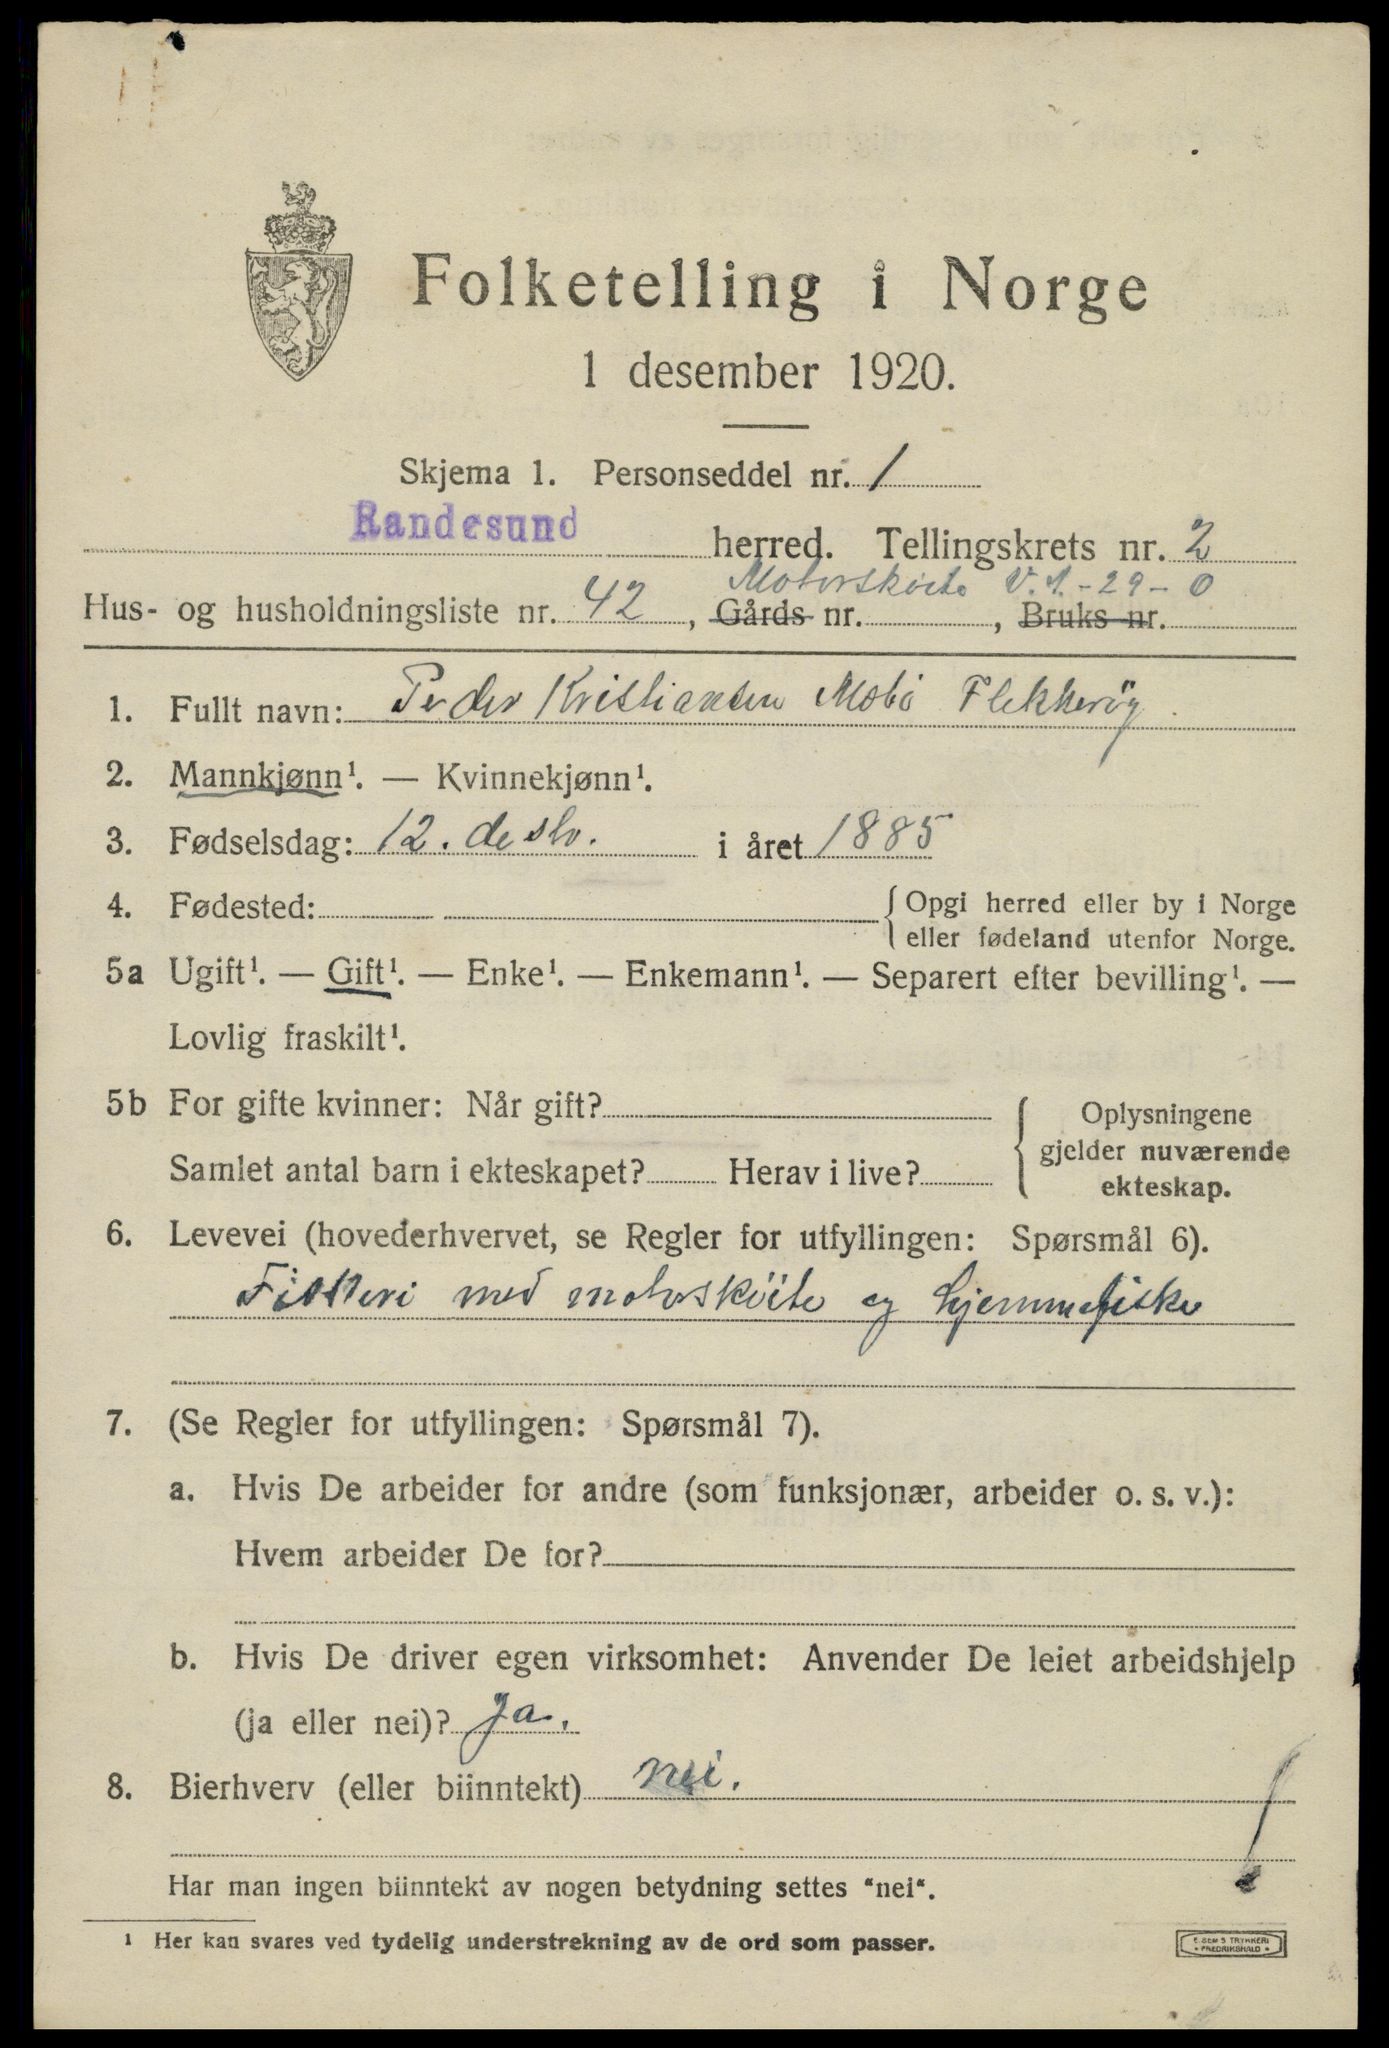 Folketelling i Norge
1 desember 1920.
Skjema 1. Personseddel nr. 1
Randesund herred. Tellingskrets nr. 2
Motorskøite V.A.-29-0
Hus- og husholdningsliste nr. 42, Gårds nr. , Bruks nr.
1. Fullt navn: Peder Kristiansen Mæbø Flekkerøy
2. Mannkjønn¹. — Kvinnekjønn¹.
3. Fødselsdag: 12. desbr. i året 1885
4. Fødested: Opgi herred eller by i Norge
eller fødeland utenfor Norge.
5a Ugift¹. — Gift¹. — Enke¹. — Enkemann¹. — Separert efter bevilling¹. —
Lovlig fraskilt¹.
5b For gifte kvinner: Når gift?
Samlet antal barn i ekteskapet? Herav i live?
Oplysningene
gjelder nuværende
ekteskap.
6. Levevei (hovederhvervet, se Regler for utfyllingen: Spørsmål 6).
Fiskeri med motorsköite og hjemmefiske
7. (Se Regler for utfyllingen: Spørsmål 7).
a. Hvis De arbeider for andre (som funksjonær, arbeider o. s. v.):
Hvem arbeider De for?
b. Hvis De driver egen virksomhet: Anvender De leiet arbeidshjelp
(ja eller nei)? Ja.
8. Bierhverv (eller biinntekt) nei.
Har man ingen biinntekt av nogen betydning settes "nei".
¹ Her kan svares ved tydelig understrekning av de ord som passer.
E. SEM'S TRYKKERI
FREDRIKSHALD